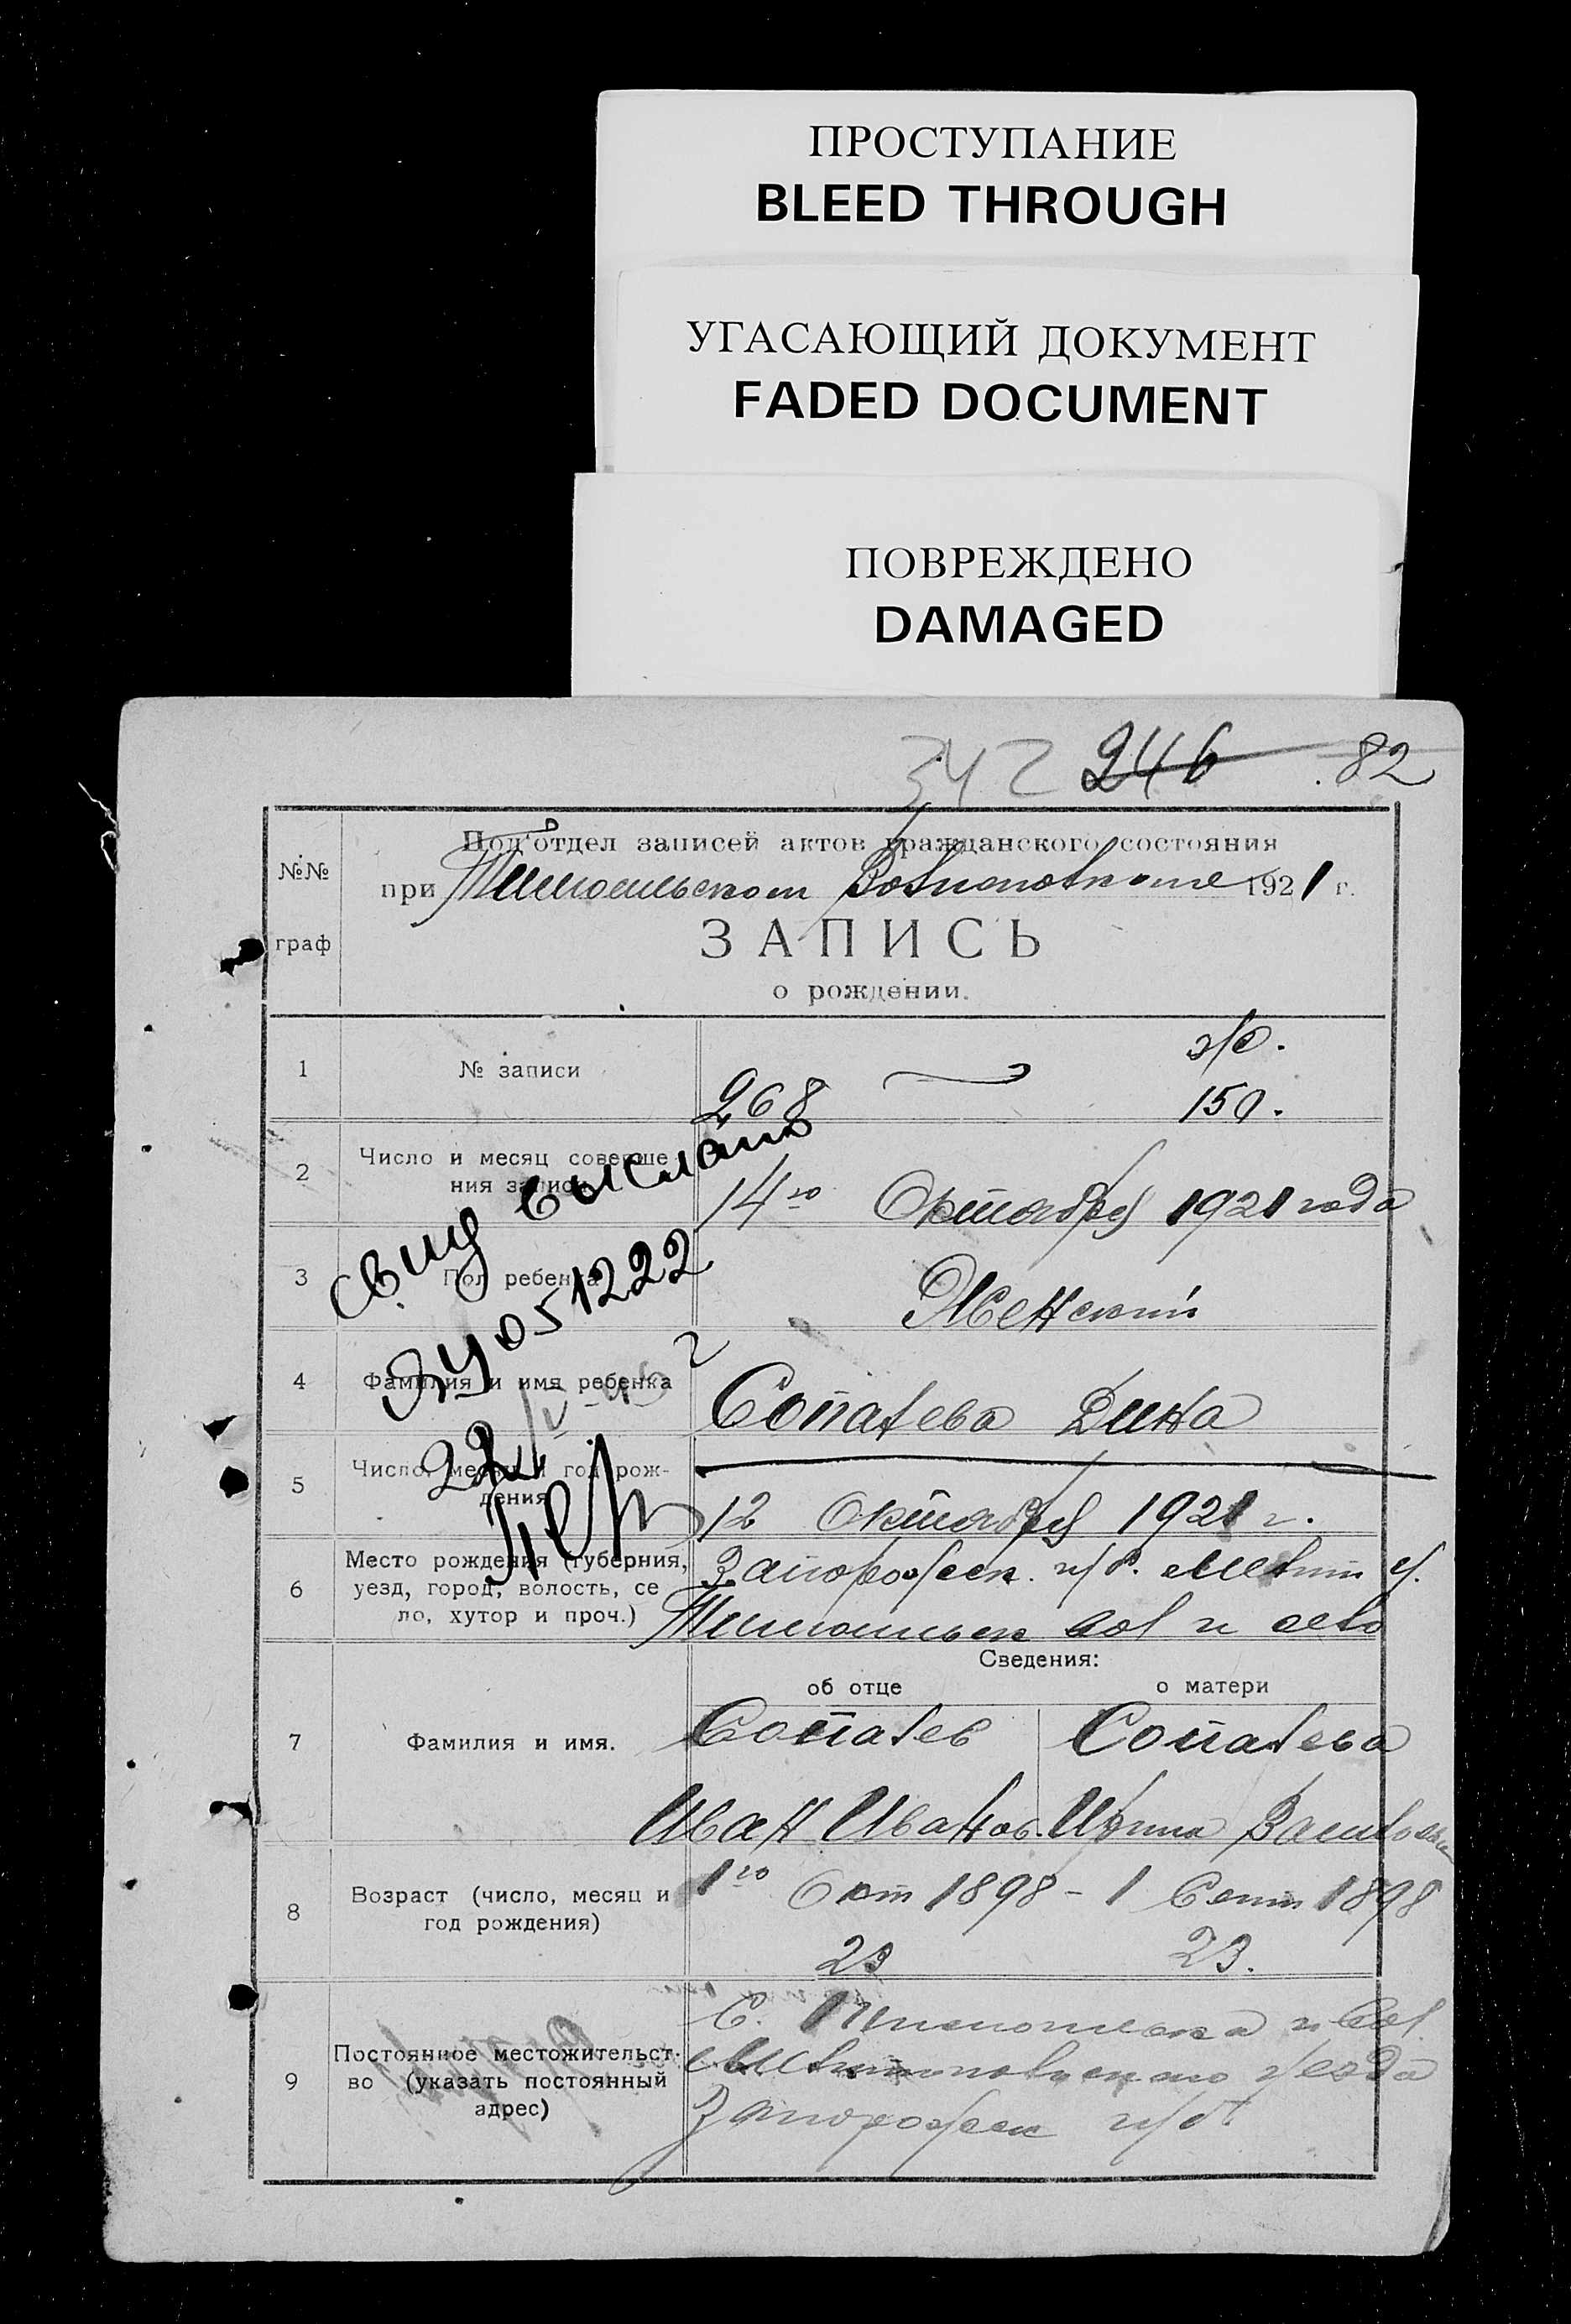 ПРОСТУПАНИЕ
BLEED THROUGH
УГАСАЮЩИЙ ДОКУМЕНТ
FADED DOCUMENT
ПОВРЕЖДЕНО
DAMAGED
342 246 82
№№ граф
Под'отдел записей актов гражданского состояния
при 1921 г.
ЗАПИСЬ
о рождении.
1 № записи 268
ж/с.
150.
2 Число и месяц соверше-
ния записи
14го Октября 1921 года
3 Пол ребенка Женский
4 Фамилия и имя ребенка Сопатева Дина
5 Число, месяц и год рож-
дения
12 Октября 1921 г.
свид выслано
051222
22
6 Место рождения (губерния,
уезд, город, волость, се
ло, хутор и проч.)
Запорожск. г/б. Мелит у.
вол и село
Сведения:
об отце о матери
7 Фамилия и имя.
Сопатев Сопатева
Иван Иванов.
8 Возраст (число, месяц и
год рождения)
1го Окт 1898 - 1 Сент 1898
23 23.
9 Постоянное местожительст-
во (указать постоянный
адрес)
С. и вол.
Мелитопольского уезда
Запорожск г/б